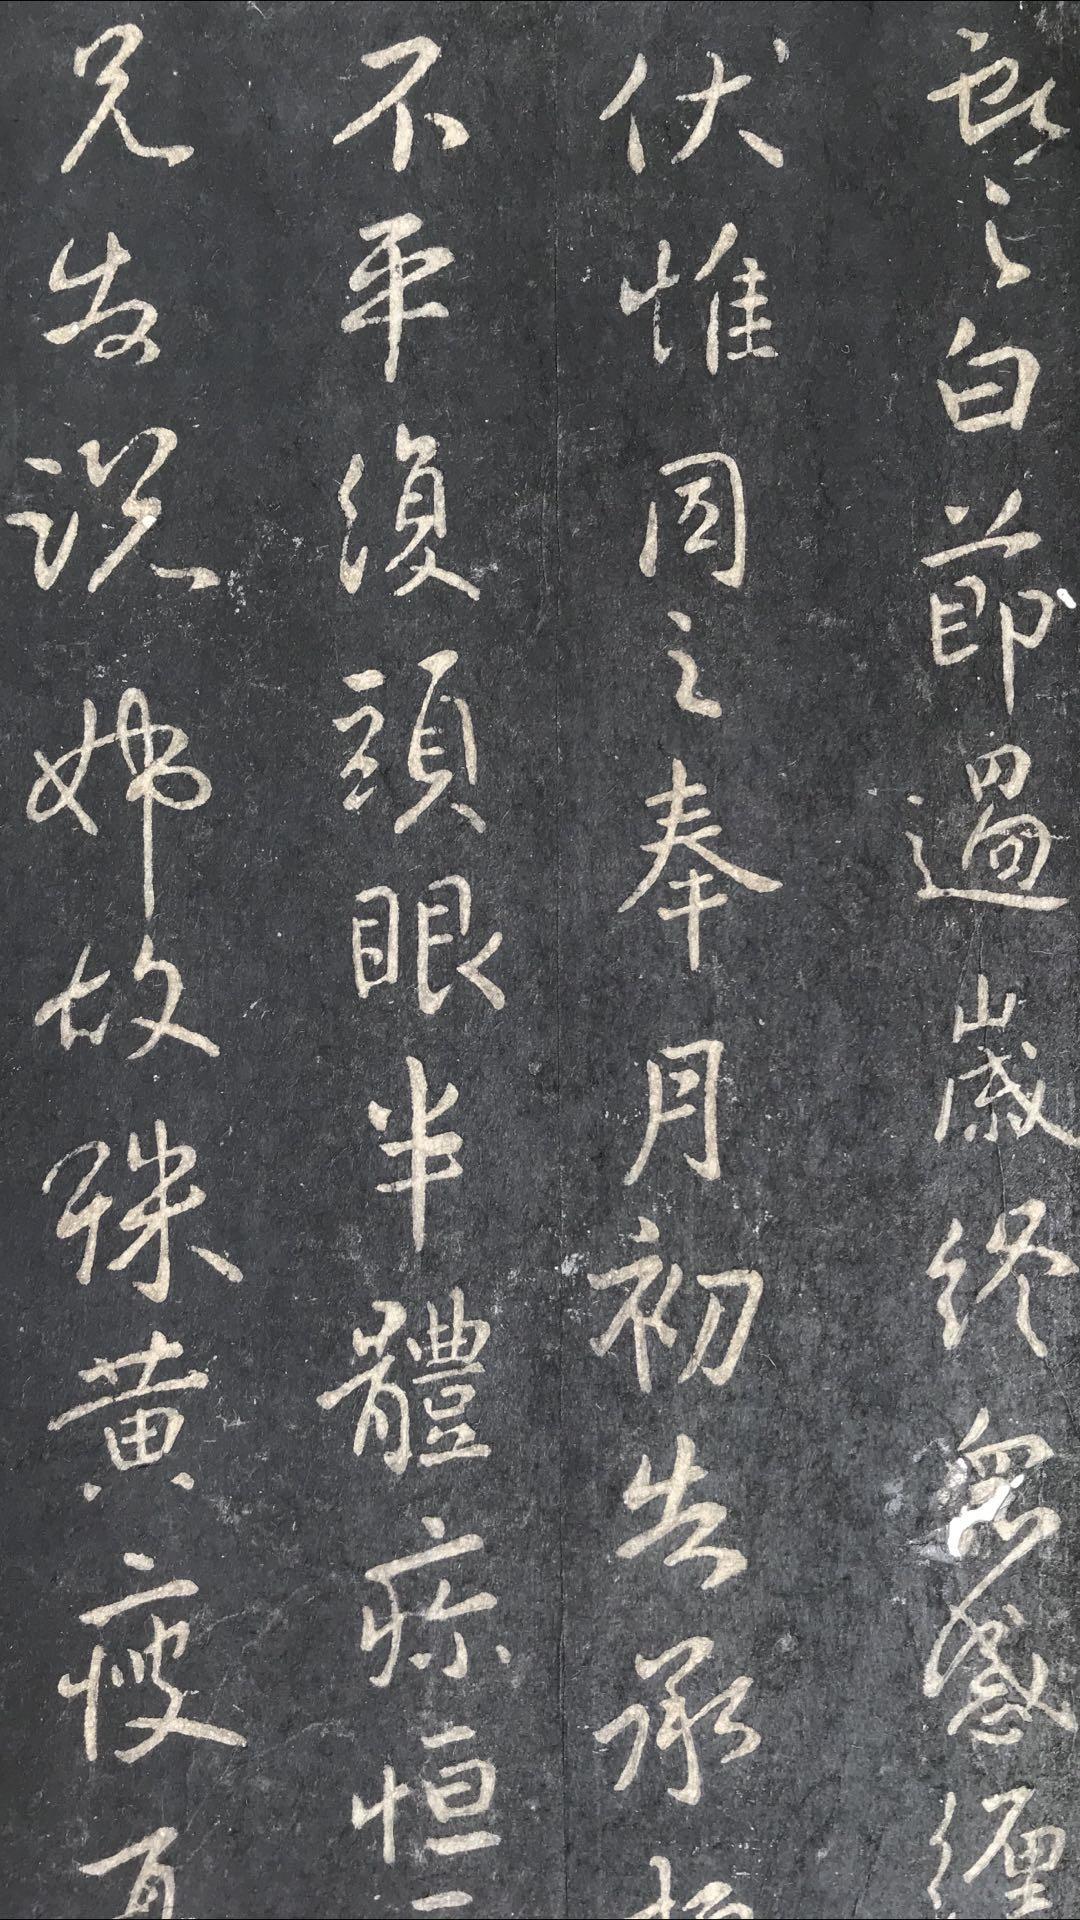 献之白節過歲終眾感纏
伏惟同之奉月初告承
不平復頭眼半體疹恒
兄告說姊故殊黃瘦